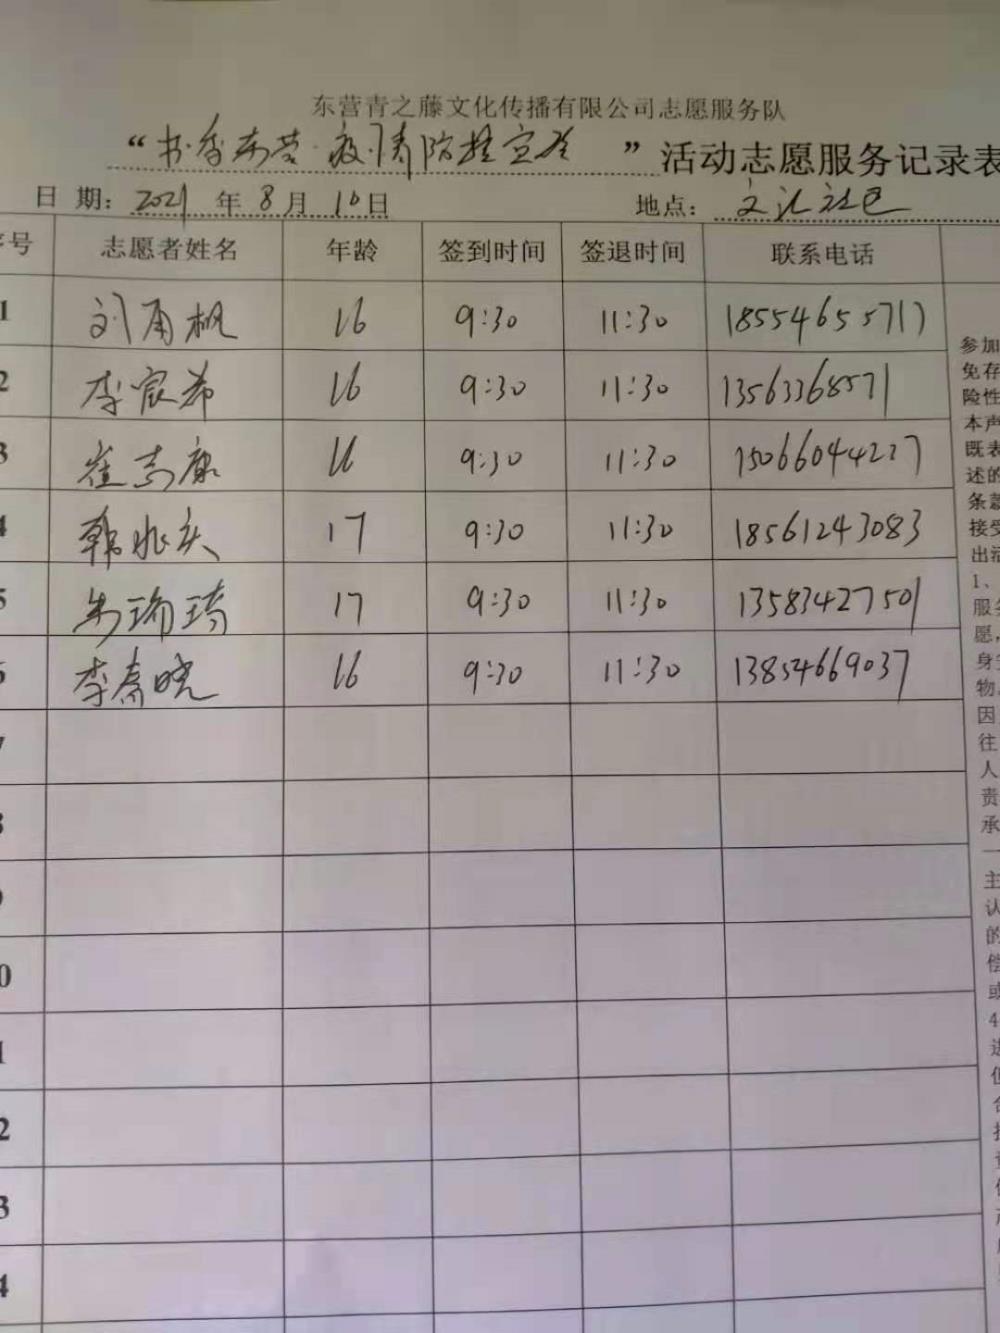 东营青之藤文化传播有限公司志愿服务队
“书香东营·疫情防控宣传”活动志愿服务记录表
日 期: 2021 年 8 月 10 日 地点: 文汇社区
序号 志愿者姓名 年龄 签到时间 签退时间 联系电话
1 刘雨枫 16 9:30 11:30 18554655717
2 李宸希 16 9:30 11:30 13563368571
3 崔志康 16 9:30 11:30 15066044227
4 韩兆庆 17 9:30 11:30 18561243083
5 朱瑜琦 17 9:30 11:30 13583427501
6 李 晓 16 9:30 11:30 13854669037
7
8
9
0
1
2
3
4
参加
免存
险性
本声
既表
述的
条款
接受
出活
1、
服务
愿,
身安
物
因
往
人
责
承
主
认
的
偿
或
4
进